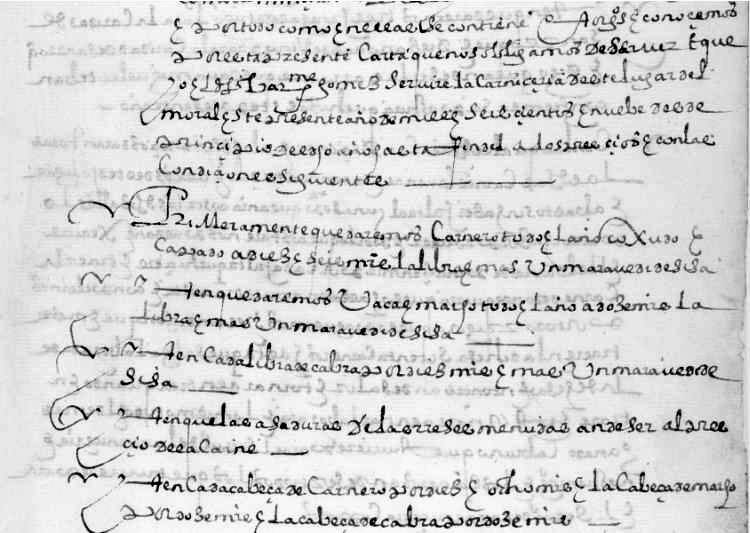 E por todo como En el se contiene otorgos E conocemos
por esta presente Carta que nos obligamos De servir E que
yo El dho bar.me gomez servire la Carniceria deste lugar del
moral Este presente año de mil E seiscientos E nuebe desde
principio del dho año hasta fin del a los preçios E con las
Condiçiones siguientes
Primeramente que daremos Carnero todo El año coxudo E
Capado a diez E seis mrs la libra E mas Un maravedi de sisa
Iten que daremos Vaca E macho todo El año a doze mrs la
libra E mas Un maravedi de sisa
Iten Cada libra de cabra por diez mrs E mas Un maravedi de
sisa
Iten que las asaduras De las Reses menudas an de ser al pre
çio de la Carne
Iten Cada cabeça de Carnero por diez E ocho mrs E la Cabeça de macho
por doze mrs E la cabeça de cabra por doze mrs